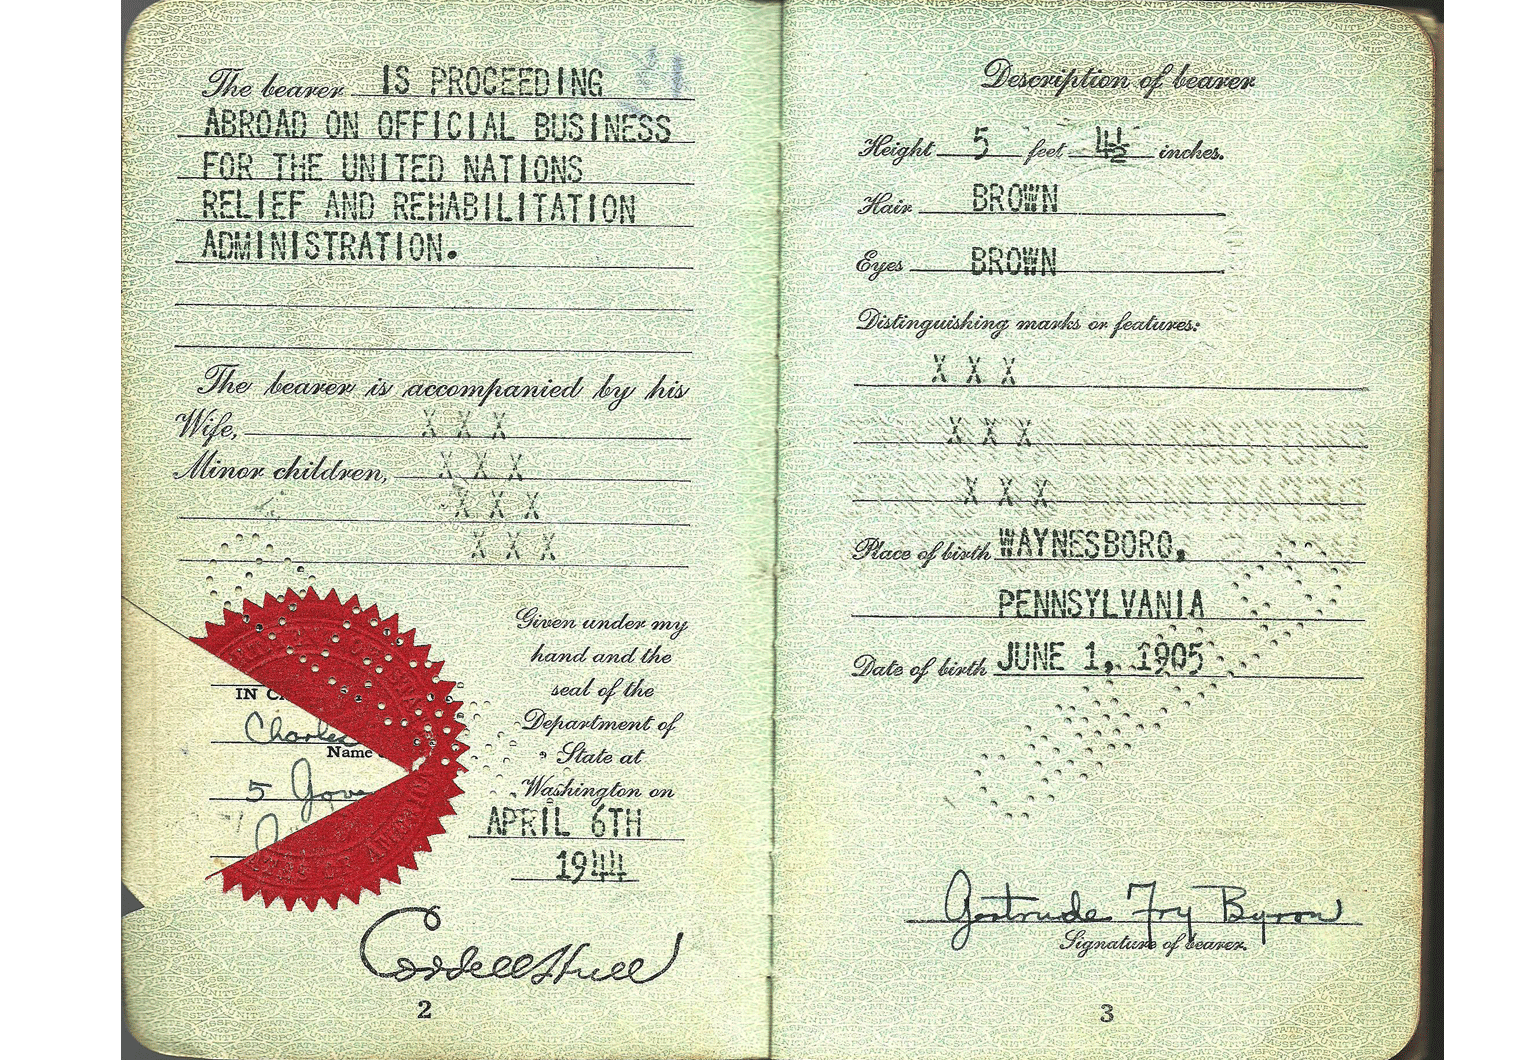 The bearer IS PROCEEDING
ABROAD ON OFFICIAL BUSINESS
FOR THE UNITED NATIONS
RELIEF AND REHABILITATION
ADMINISTRATION.
The bearer is accompanied by his
Wife, X X X
Minor children, X X X
X X X
X X X
Given under my
hand and the
seal of the
Department of
State at
Washington on
APRIL 6TH
1944
IN C
Charles
Name
5 Gove
Cordell Hull
2
Description of bearer
Height 5 feet 4½ inches.
Hair BROWN
Eyes BROWN
Distinguishing marks or features:
X X X
X X X
X X X
Place of birth WAYNESBORO,
PENNSYLVANIA
Date of birth JUNE 1, 1905
Gertrude Fry Byron
Signature of bearer.
3